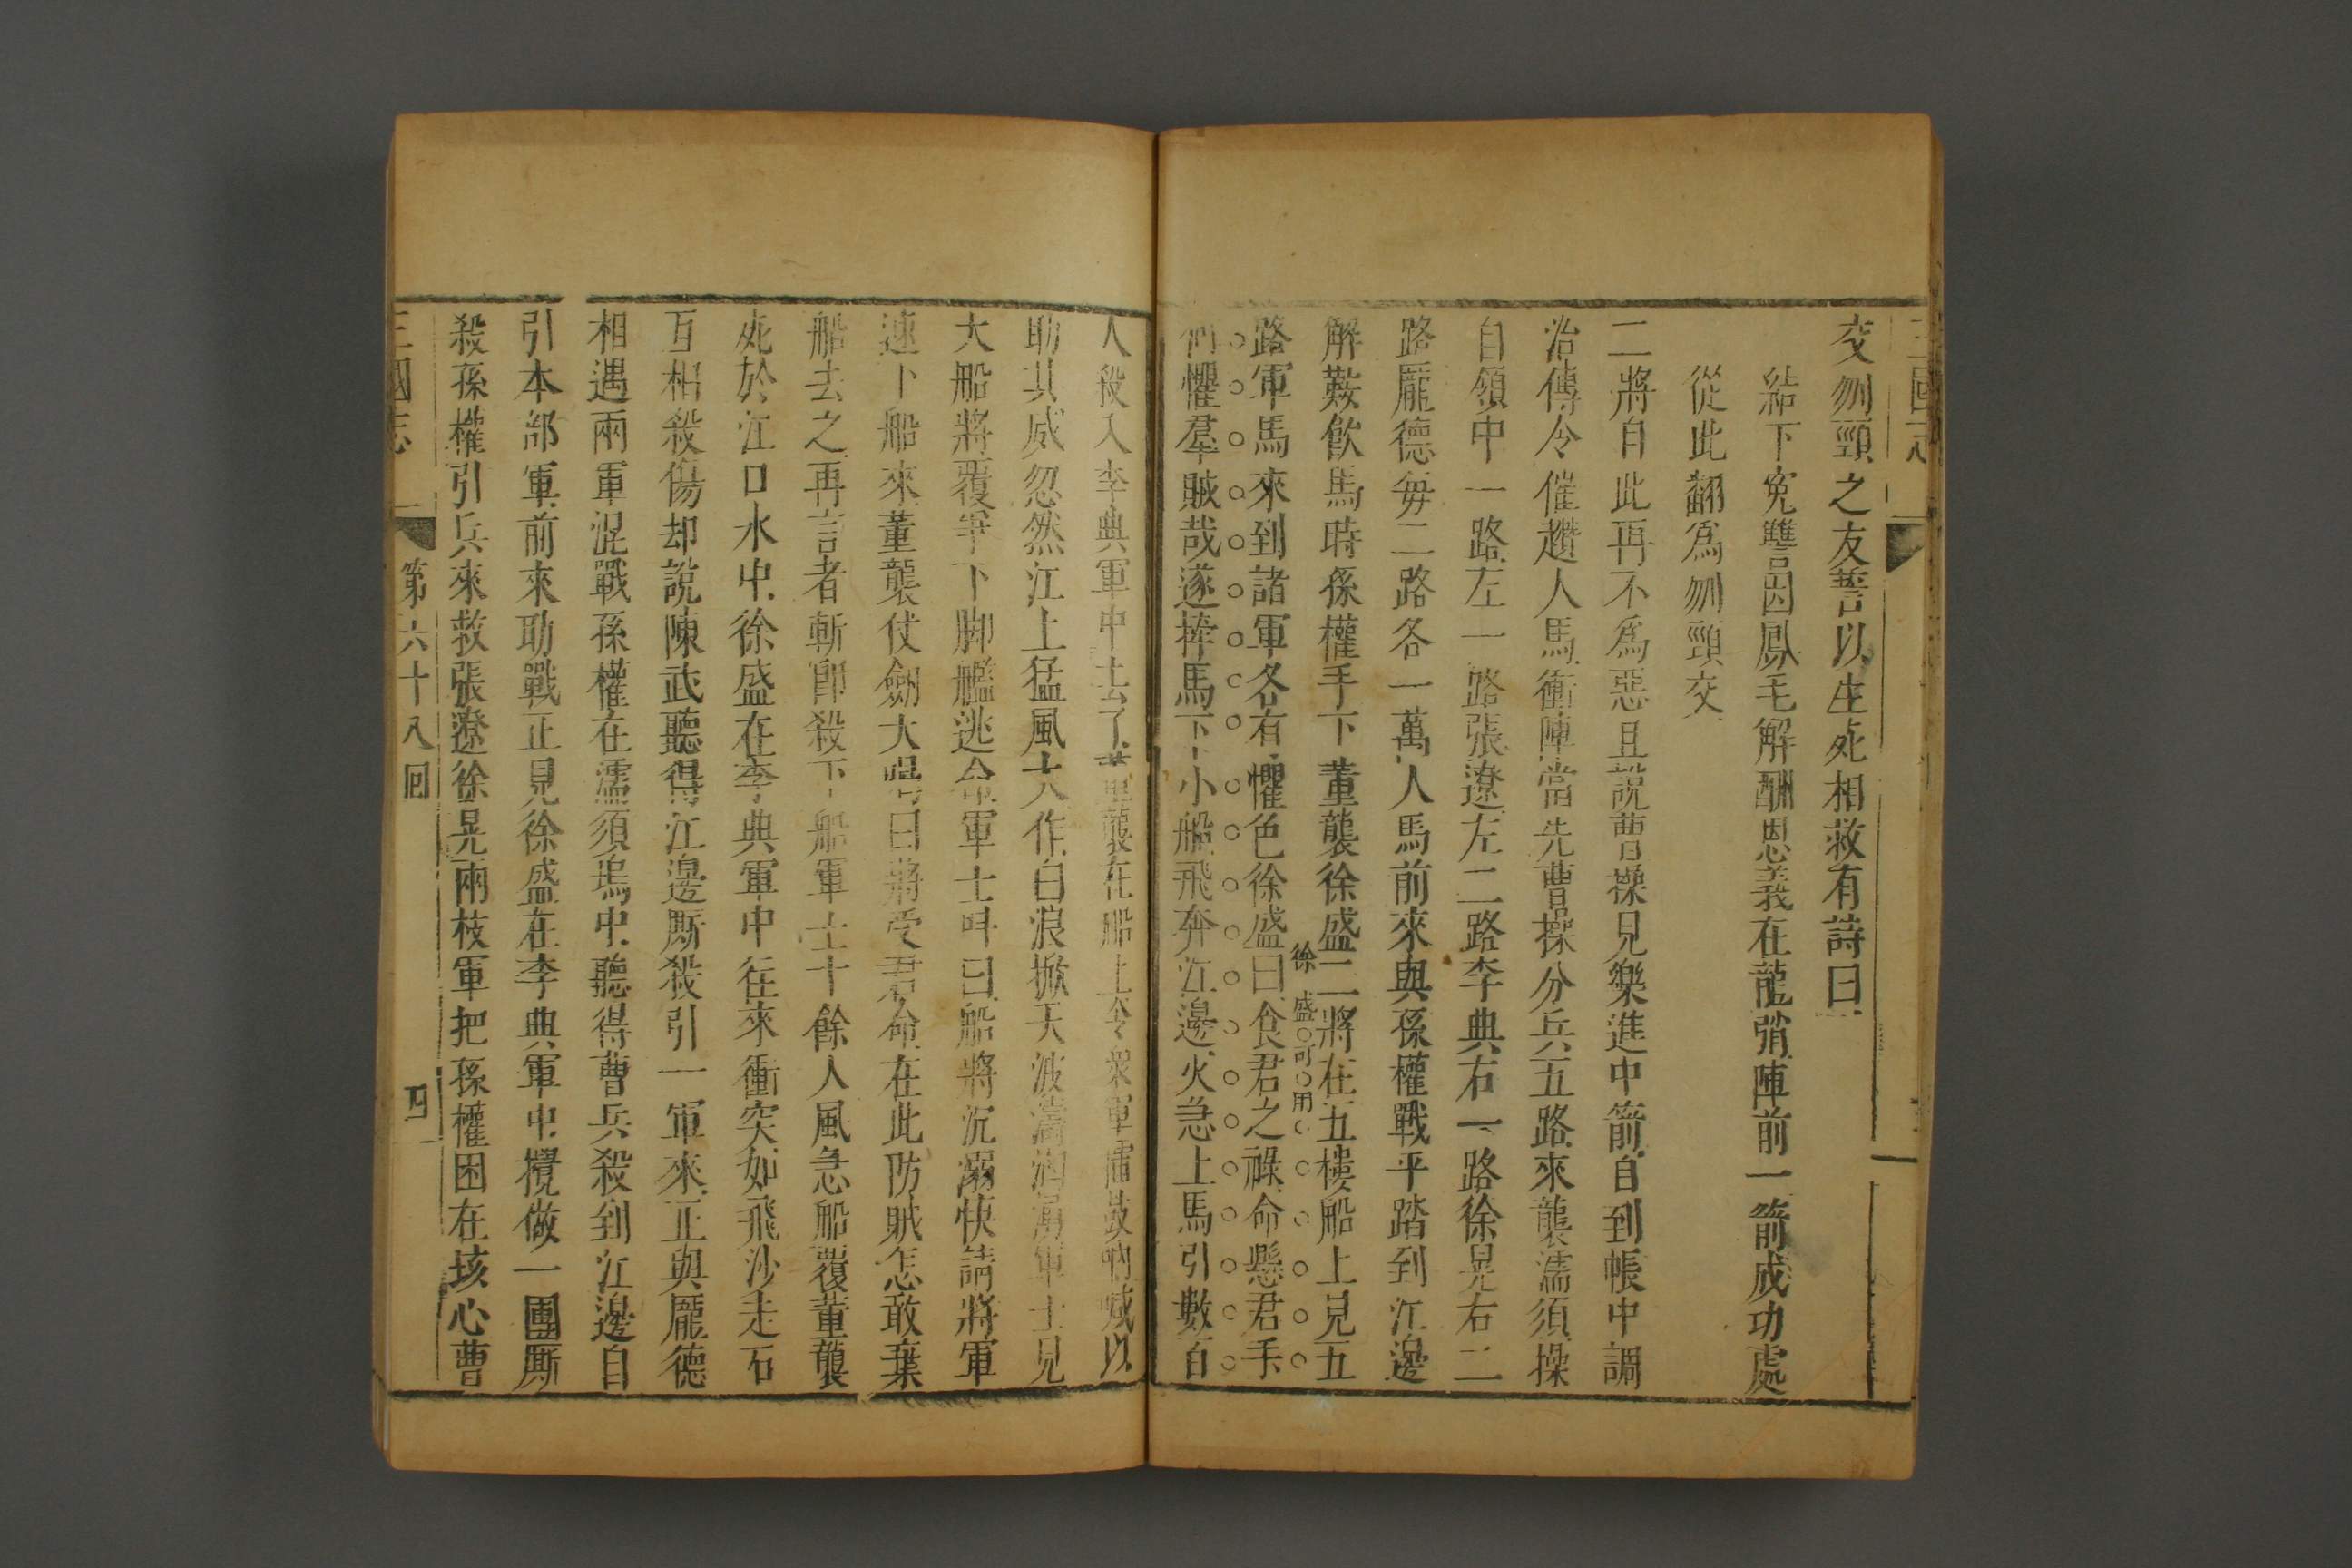 三國志
交刎頸之友誓以生死相救有詩曰
結下寃讐因鳳毛解酬恩義在龍韜陣前一箭成功處
從此翻爲刎頸交
二將自此再不爲惡且說曹操見樂進中箭自到帳中調
治傳令催趲人馬衝陣當先曹操分兵五路來襲濡須操
自領中一路左一路張遼左二路李典右一路徐晃右二
路龐德每二路各一萬人馬前來與孫權戰平踏到江邊
解鞍飲馬時孫權手下董襲徐盛二將在五樓船上見五
徐盛可用
路軍馬來到諸軍各有懼色徐盛曰食君之祿命懸君手
們懼羣賊哉遂捧馬下小船飛奔江邊火急上馬引數百
人殺入李典軍中去了董襲在船上令衆軍擂鼓吶喊以
助其威忽然江上猛風大作白浪掀天波濤洶湧軍士見
大船將覆爭下脚艦逃命軍士叫曰船將沉溺快請將軍
速下船來董襲仗劍大喝曰將受君命在此防賊怎敢棄
船去之再言者斬卽殺下船軍士十餘人風急船覆董襲
死於江口水中徐盛在李典軍中往來衝突如飛沙走石
互相殺傷却說陳武聽得江邊厮殺引一軍來正與龐德
相遇兩軍混戰孫權在濡須塢中聽得曹兵殺到江邊自
引本部軍前來助戰正見徐盛在李典軍中攪做一團厮
殺孫權引兵來救張遼徐晃兩枝軍把孫權困在垓心曹
三國志 第六十八囘 四